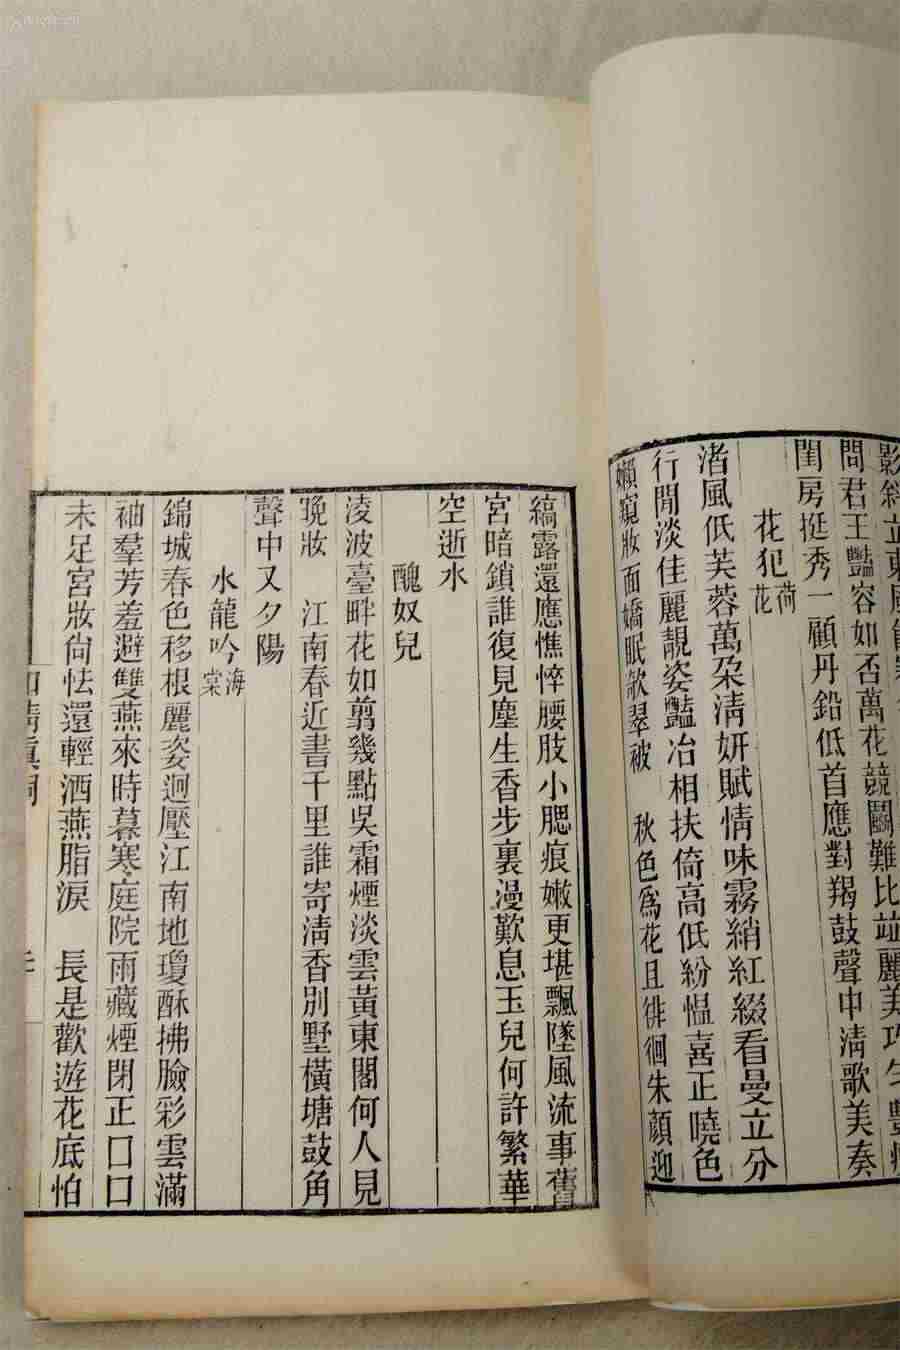 影 立東風
問君王豔容如否萬花競鬭難比竝麗美巧生豔
閨房挺秀一顧丹鉛低首應對羯鼓聲中清歌美奏
花犯 荷花
渚風低芙蓉萬朶清妍賦情味霧綃紅綴看曼立分
行閒淡佳麗靚姿豔冶相扶倚高低紛慍喜正曉色
嬾窺妝面嬌眠欹翠被　秋色爲花且徘徊朱顏迎
縞露還應憔悴腰肢小腮痕嫩更堪飄墜風流事舊
宮暗鎖誰復見塵生香步裏漫歎息玉兒何許繁華
空逝水
醜奴兒
淩波臺畔花如翦幾點吳霜煙淡雲黃東閣何人見
晚妝　江南春近書千里誰寄淸香別墅橫塘鼓角
聲中又夕陽
水龍吟 海棠
錦城春色移根麗姿迥壓江南地瓊酥拂臉彩雲滿
袖羣芳羞避雙燕來時暮寒庭院雨藏煙閉正口口
未足宮妝尙怯還輕洒燕脂淚　長是歡遊花底怕
和淸眞詞